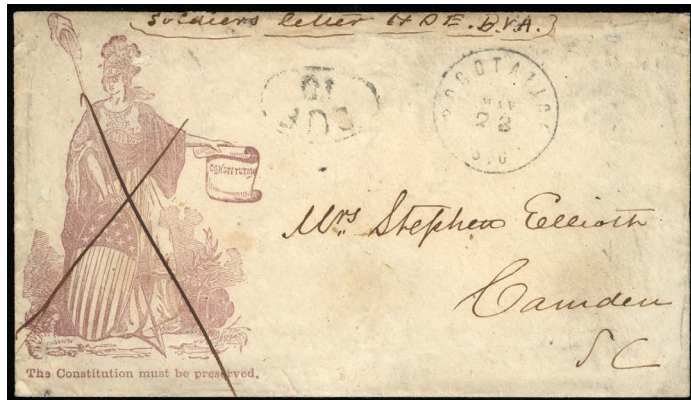 Soldiers letter
DUE
10
POCOTALIGO
MAR
S.C.
CONSTITUTION
Mrs. Stephen Elliott
Camden
S C
The Constitution must be preserved.